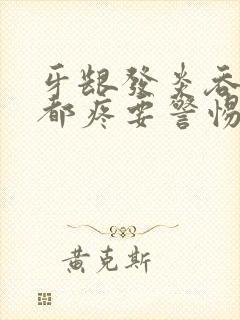 牙龈發炎吞
都疼要警惕
黄克斯